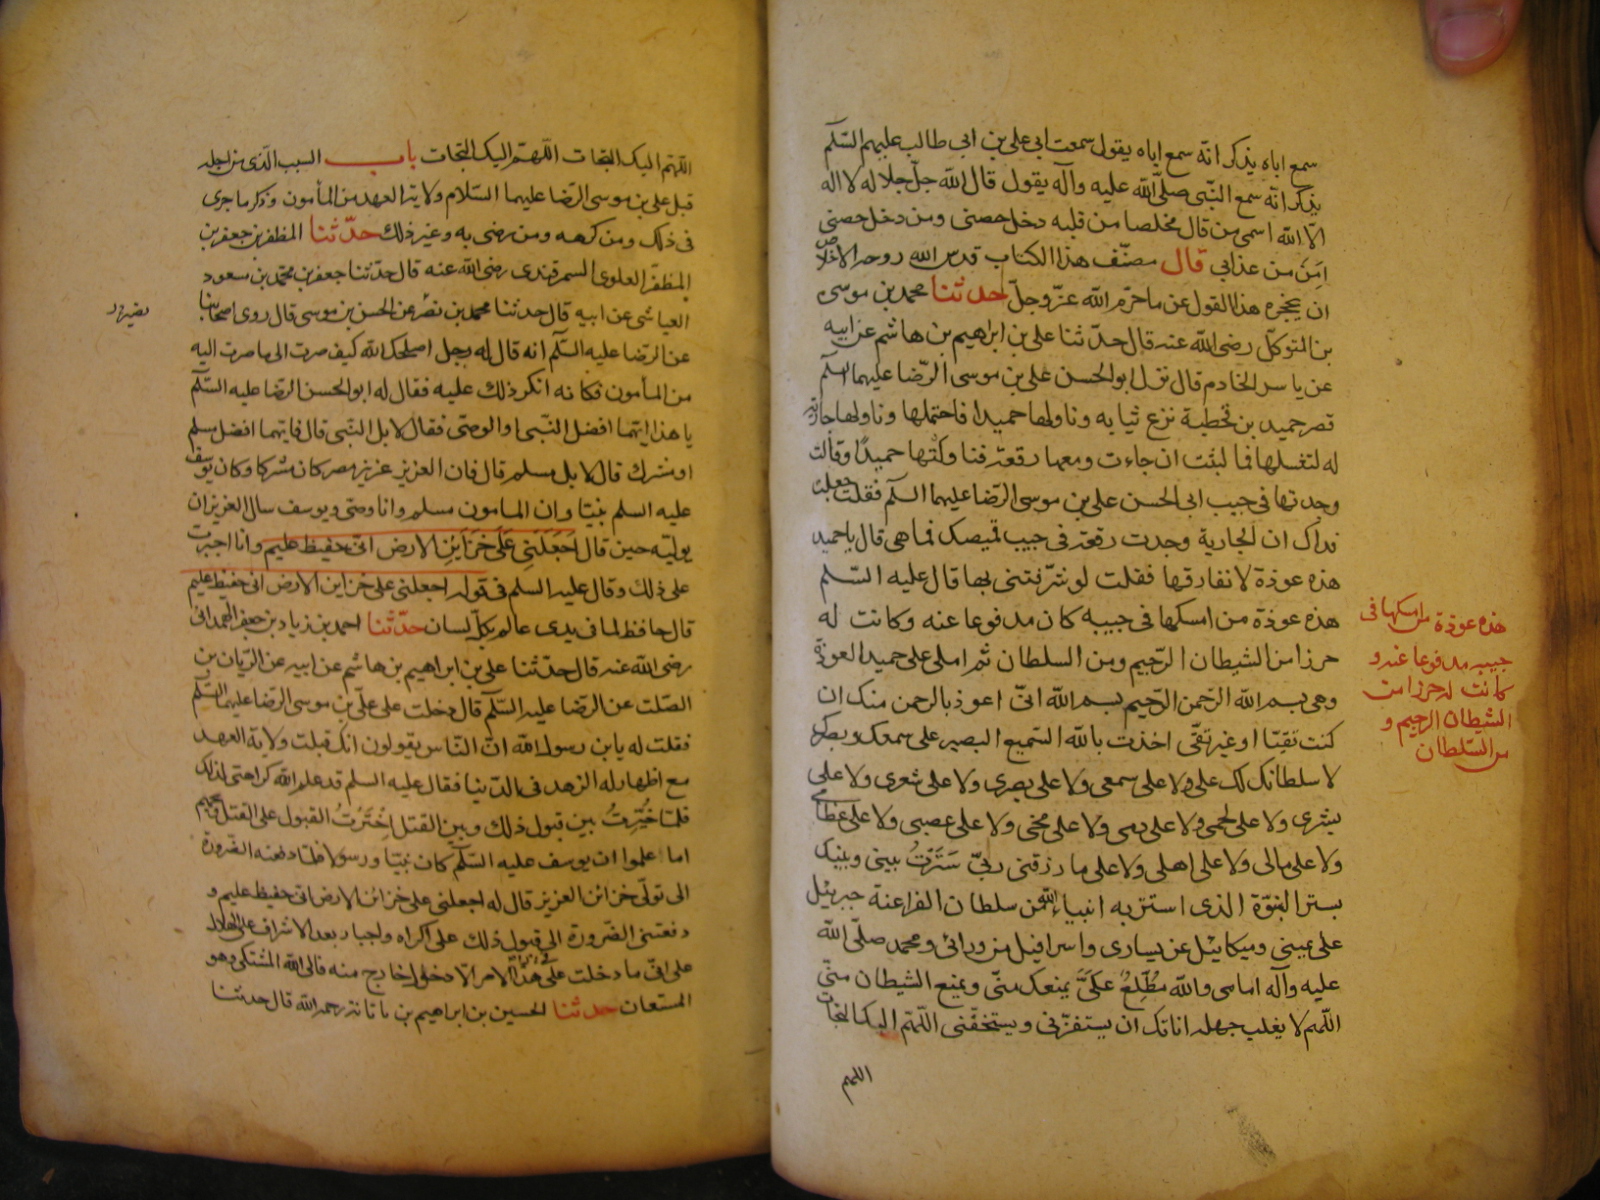 سمع اباه يذكر انه سمع اباه يقول سمعت ابى على بن ابى طالب عليهم السلم
يذكر انه سمع النبى صلى الله عليه وآله يقول قال الله جل جلاله لا اله
الا الله اسمى من قال مخلصا من قلبه دخل حصنى ومن دخل حصنى
امن من عذابى قال مصنف هذا الكتاب قدس الله روحه الاخلاص
ان يحجزه هذا القول عن ما حرم الله عز وجل حدثنا محمد بن موسى
بن المتوكل رضى الله عنه قال حدثنا على بن ابراهيم بن هاشم عن ابيه
عن ياسر الخادم قال نزل ابو الحسن على بن موسى الرضا عليهما السلم
قصر حميد بن قحطبة نزع ثيابه وناولها حميدا فاحتملها وناولها جارية
له لتغسلها فما لبثت ان جاءت ومعها رقعة فناولتها حميدا وقالت
وجدتها فى جيب ابى الحسن على بن موسى الرضا عليهما السلم فقلت جعلت
فداك ان الجارية وجدت رقعة فى جيب قميصك فما هى قال يا حميد
هذه عوذة لا نفارقها فقلت لو شرفتنى بها قال عليه السلم
هذه عوذة من امسكها فى جيبه كان مدفوعا عنه وكانت له
حرزا من الشيطان الرجيم ومن السلطان ثم املى على حميد العوذة
وهى بسم الله الرحمن الرحيم بسم الله انى اعوذ بالرحمن منك ان
كنت تقيا او غير تقى اخذت بالله السميع البصير على سمعك وبصرك
لا سلطانك لك على ولا على سمعى ولا على بصرى ولا على شعرى ولا على
بشرى ولا على لحمى ولا على دمى ولا على مخى ولا على عصبى ولا على عظامى
ولا على مالى ولا على اهلى ولا على ما رزقنى ربى سَتَرْتُ بينى وبينك
بستر النبوة الذى استتر به انبياء الله من سلطان الفراعنة جبرئيل
على يمينى وميكائيل عن يسارى واسرافيل من ورائى ومحمد صلى الله
عليه وآله امامى والله مُطَّلِعٌ عَلَىَّ يمنعك منى ويمنع الشيطان منى
اللهم لا يغلب جهله اناتك ان يستفزنى ويستخفنى اللهم اليك التجات
اللهم
هذه عوذة من امسكها فى
جيبه مدفوعا عنه و
كانت له حرزا من
الشيطان الرجيم و
من السلطان
اللهم اليك التجات اللهم اليك التجات باب السبب الذى من اجله
قبل على بن موسى الرضا عليهما السلام ولاية العهد من المأمون وذكر ما جرى
فى ذلك ومن كرهه ومن رضى به وغير ذلك حدثنا المظفر بن جعفر بن
المظفر العلوى السمرقندى رضى الله عنه قال حدثنا جعفر بن محمد بن مسعود
العياشى عن ابيه قال حدثنا محمد بن نصر عن الحسن بن موسى قال روى اصحابنا
عن الرضا عليه السلم انه قال له رجل اصلحك الله كيف صرت الى ما صرت اليه
من المأمون فكانه انكر ذلك عليه فقال له ابو الحسن الرضا عليه السلم
يا هذا ايتهما افضل النبى او الوصى فقال لا بل النبى قال فايتهما افضل مسلم
او مشرك قال لا بل مسلم قال فان العزيز عزيز مصر كان مشركا وكان يوسف
عليه السلم نبيا وان المامون مسلم وانا وصى ويوسف سال العزيز ان
يوليه حين قال اجعلنى على خزاين الارض انى حفيظ عليم وانا اجبرت
على ذلك وقال عليه السلم فى قوله اجعلنى على خزاين الارض انى حفيظ عليم
قال حافظ لما فى يدى عالم بكل لسان حدثنا احمد بن زياد بن جعفر الهمدانى
رضى الله عنه قال حدثنا على بن ابراهيم بن هاشم عن ابيه عن الريان بن
الصلت عن الرضا عليه السلم قال دخلت على على بن موسى الرضا عليهما السلم
فقلت له يا بن رسول الله ان الناس يقولون انك قبلت ولاية العهد
مع اظهارله الزهد فى الدنيا فقال عليه السلم قد علم الله كراهتى لذلك
فلما خُيِّرتُ بين قبول ذلك وبين القتل اِخْتَرْتُ القبول على القتل ويحهم
اما علموا ان يوسف عليه السلم كان نبيا ورسولا فلما دفعته الضرورة
الى تولى خزائن العزيز قال له اجعلنى على خزائن الارض انى حفيظ عليم و
دفعتنى الضرورة الى قبول ذلك على اكراه واجبار بعد الاشراف على الهلاك
على انى ما دخلت فى هذا الامر الا دخول خارج منه فالى الله المشتكى وهو
المستعان حدثنا الحسين بن ابراهيم بن ناتانة رحمه الله قال حدثنا